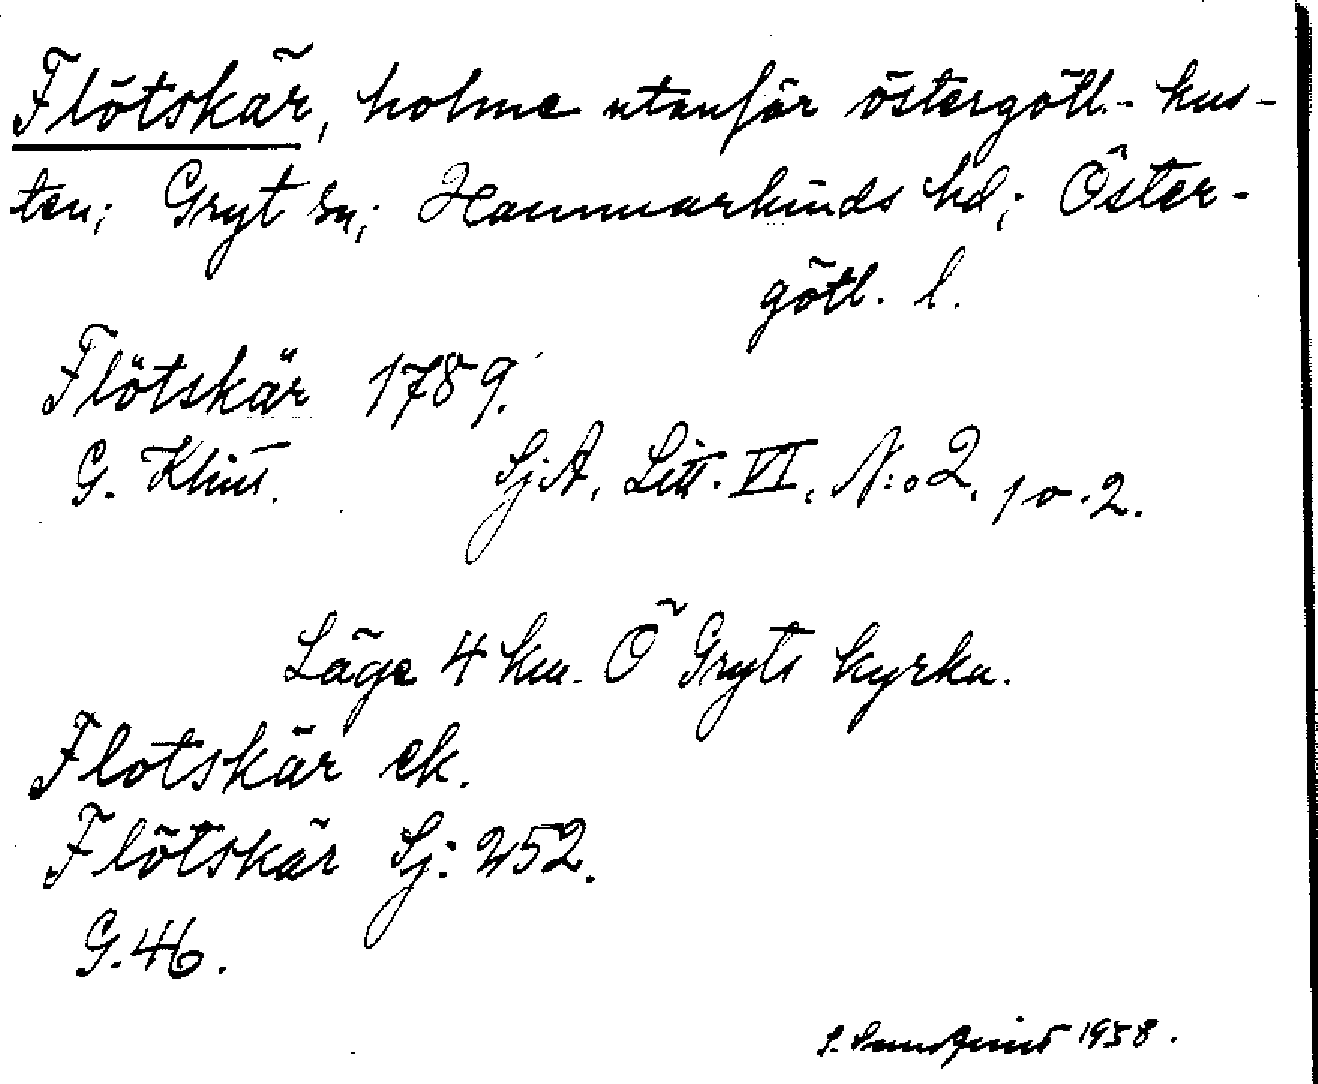 Flötskär, holme utanför östergötl.- kus-
ten; Gryt sn; Hammarkinds hd; Öster-
götl. l.
Flötskär 1789.
G. Klint. Sj.A, Litt. VI, N:o 2, p. 2.
Läge 4 km. Ö Gryts kyrka.
Flotskär ek.
Flötskär Sj: 252.
G. 46.
S. 1958.